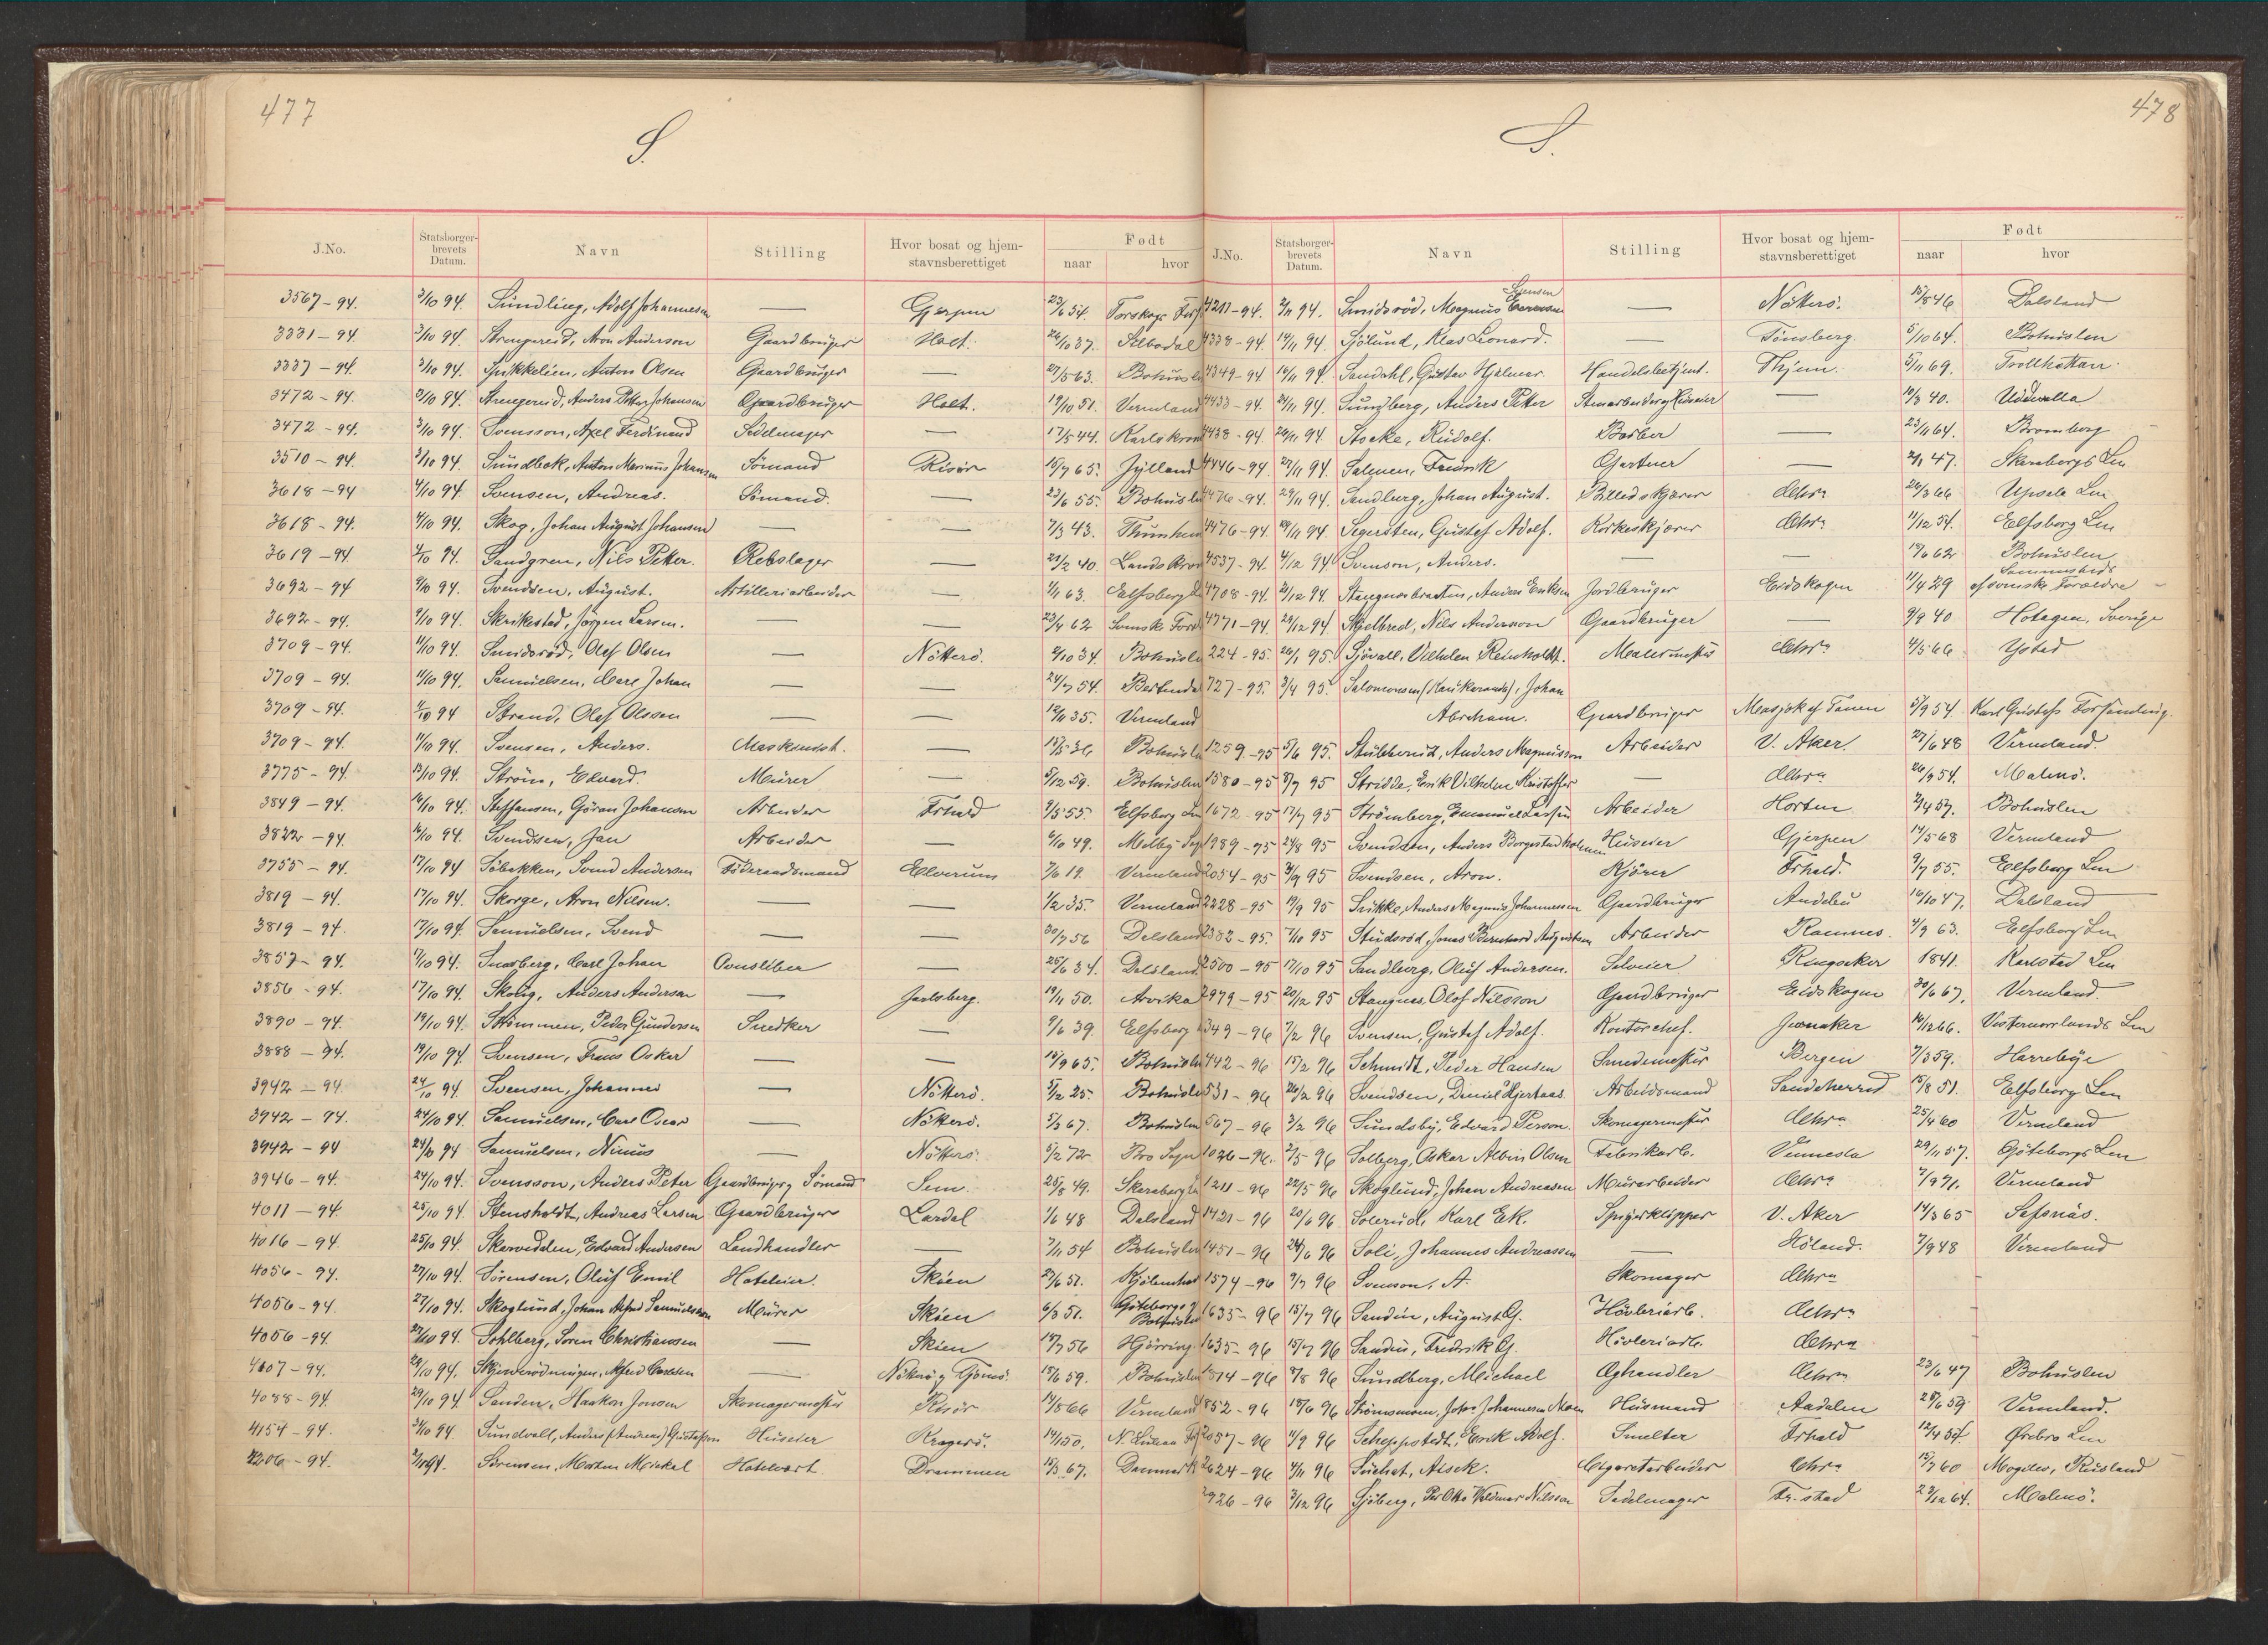 477
S.
J.No.
Statsborger-
brevets
Datum.
Navn
Stilling
Hvor bosat og hjem-
stavnsberettiget
Født
naar
hvor
3567-94. 3/10 94. Sundling, Adolf Johannesen — Gjerpen 23/6 54. Torskogs
3331-94. 3/10 94. Strengereid, Aron Anderson Gaardbruger Holt. 26/10 37.
3337-94. 3/10 94. Spikkelien, Anton Olsen Gaardbruger — 27/5 63. Bohuslen
3472-94. 3/10 94. Strengereid, Anders Petter Johansen Gaardbruger Holt. 19/10 51. Vermland
3472-94. 3/10 94. Svensson, Axel Ferdinand Sadelmager — 17/5 44. Karlskrona
3510-94. 3/10 94. Sundbeck, Anton Marinus Johansen Sømand Risør 15/7 65. Jylland
3618-94 4/10 94. Svensen, Andreas. Sømand. — 23/6 55. Bohuslen
3618-94. 4/10 94. Skog, Johan August Johansen — — 7/3 43.
3619-94. 4/10 94. Sandgren, Nils Petter. Rebslager — 21/2 40. Lands
3692-94 9/10 94. Svendsen, August. Artilleriarbeider — 1/1 63. Elfsborg
3692-94. 9/10 94. Skrikestad, Jörgen Larsen. — — 23/4 62 Svenske
3709-94. 11/10 94. Smidsröd, Olaf Olsen — Nötterö. 2/10 34. Bohuslen
3709-94. 11/10 94. Samuelsen, Carl Johan — — 24/7 54.
3709-94. 11/10 94 Strand, Olaf Olsson — — 12/11 35. Vermland
3709-94. 11/10 94. Svensen, Anders. Maskinist. — 15/5 36 Bohuslen
3775-94. 13/10 94. Ström, Edvard. Murer — 5/12 59. Bohuslen
3849-94. 16/10 94. Steffansen, Göran Johanson Arbeider Frhald 9/5 55. Elfsborg Len
3822-94. 16/10 94. Svendsen, Jan Arbeider — 6/10 49. Melby
3755-94. 17/10 94 Söbakken, Svend Andersen Föderaadsmand Elverum 7/6 19. Vermland
3819-94. 17/10 94. Skorge, Aron Nilsen. — — 1/2 35. Vermland
3819-94. 17/10 94. Samuelsen, Svend — — 30/7 56 Dalsland
3857-94. 17/10 94. Snarberg, Carl Johan Ovnsliber — 25/6 34. Dalsland
3856-94. 17/10 94. Skoug, Anders Anderson — Jarlsberg. 19/11 50. Arvika
3890-94. 19/10 94. Strömmen, Peder Gundersen Snedker — 9/6 39 Elfsborg
3888-94. 19/10 94. Svensen, Frans Oskar — — 15/9 65. Bohuslen
3942-94 24/10 94. Svensen, Johannes — Nötterö. 5/12 25. Bohuslen
3942-94. 24/10 94. Samuelsen, Carl Oscar — Nötterö. 5/3 67. Bohuslen
3942-94 24/10 94 Samuelsen, Ninus — Nötterö. 5/2 72 Bro Sogn
3946-94. 24/10 94. Svensson, Anders Peter Gaardbruger og Sømand Sem. 25/8 49. Skaraborg
4011-94. 25/10 94. Stensholdt, Andreas Larsen Gaardbruger Lardal 1/6 48 Dalsland
4016-94. 25/10 94. Skarvedalen, Edvard Andersen Landhandler — 7/11 54 Bohuslen
4056-94. 27/10 94. Sørensen, Oluf Emil Hoteleier. Skien 27/6 51. Kjöbenhavn
4056-94. 27/10 94. Skoglund, Johan Alfred Samuelsson Murer Skien 6/3 51. Göteborgs og Bohuslen
4056-94 27/10 94. Sohlberg, Soren Christianssen — Skien 17/7 56 Hjörring
4607-94. 29/10 94. Alfred Carlsen — Nötterö og Tjömö. 15/6 59. Bohuslen
4088-94. 29/10 94 Sanden, Haakon Jonsen Skomagermester Risör 14/8 66 Vermland
4154-94. 31/10 94. Sundvall, Anders (Andreas) Gustafsson Huseier Kragerö. 14/1 50.
4206-94. 2/11 94. Sörensen, Morten Mickal Hotelvært Drammen 15/3 67. Danmark
478
S.
J.No.
Statsborger-
brevets
Datum.
Navn
Stilling
Hvor bosat og hjem-
stavnsberettiget
Født
naar
hvor
4211-94. 2/11 94. Smidsröd, Magnus Svensen — Nötterö. 15/8 46 Dalsland
4338-94. 14/11 94. Sjölund, Klas Leonard. — Tönsberg. 5/10 64. Bohuslen
4349-94 16/11 94. Sandahl, Gustav Hjalmar. Handelsbetjent. Thjem. 5/11 69. Trollhättan.
4433-94. 24/11 94. Sundberg, Anders Petter Stenarbeider og Huseier — 10/3 40. Uddevalla
4438-94. 26/11 94. Stocke, Rudolf. Barber — 23/11 64. Bromberg
4446-94. 27/11 94. Salmen, Fredrik Gjartner — 2/1 47. Skaraborgs Len
4476-94. 29/11 94. Sandberg, Johan August. Billedskjærer Chra 26/3 66 Upsala Len
4476-94. 29/11 94. Segersten, Gustaf Adolf. Korkeskjærer Chra 11/12 54. Elfsborg Len
4537-94. 4/12 94 Svenson, Anders. — — 19/6 62 Bohuslen
4708-94. 21/12 94. Stangnesbraaten, Anders Eriksen Jordbruger Eidskogen 11/4 29 Sammesteds af svenske Forældre
4771-94. 29/12 94 Skjelbred, Nils Anderson Gaardbruger — 9/9 40 Hotagen, Sverige
224-95. 26/1 95. Sjövall, Vilhelm Reinholdt. Malermester Chra 4/5 66 Ystad
727-95. 3/4 95. Salomonsen, Johan
Abraham. Gaardbruger Masjok af Tanen 5/9 54. Karl Gustafs Forsamling.
1259-95 5/6 95. Anders Magnusson Arbeider V. Aker. 27/6 48 Vermland.
1580-95 8/7 95 Stridde, Erik Vilhelm Kristoffer — Chra 26/9 54. Malmö.
1672-95 17/7 95 Strömberg, Emanuel Larsen Arbeider Horten 2/4 57. Bohuslen
1989-95 24/8 95 Svendsen, Anders Borgestadholmen Huseier Gjerpen 14/5 68 Vermland
2054-95 3/9 95 Svendsen, Aron. Kjörer Frhald. 9/7 55. Elfsborg Len
2228-95 19/9 95 Anders Magnus Johannessen Gaardbruger Andebu 16/10 47. Dalsland
2382-95. 7/10 95 Studsröd, Jonas Bernhard Augustsen Arbeider Ramnes. 4/9 63. Elfsborg Len
2500-95 17/10 95 Sandberg, Oluf Andersen. Selveier Ringsaker 1841. Karlstad Len
2979-95 20/12 95 Stangnes, Olof Nilsson Gaardbruger Eidskogen 30/6 67. Vermland.
349-96 7/2 96 Svensen, Gustaf Adolf. Kontorchef. Jevnaker 16/12 66. Vesternorrlands Len
442-96 15/2 96 Schmidt, Peder Hansen Smedemester Bergen 7/3 59. Harreböge
531-96 26/2 96 Svendsen, Daniel Hjertaas. Arbeidsmand Sandeherred 15/8 51. Elfsborg Len
567-96 3/2 96 Sundsby, Edvard Person. Skomagermester Chra 25/4 60 Vermland
1036-96. 2/5 96 Solberg, Oskar Albin Olsen Fabrikarb. Vennesla 29/11 57. Göteborgs Len
1211-96 22/5 96 Skoglund, Johan Andreasen Murarbeider Chra 7/9 71. Vermland
1421-96 20/6 96 Solerud, Karl Ek. Spigerklipper V. Aker 14/3 65 Safsnäs.
1451-96 24/6 96 Soli, Johannes Andreassen — Höland. 7/9 48 Vermland
1574-96 9/7 96 Svenson, A. Skomager Chra
1635-96 15/7 96 Sandin, August G. Hövleriarb. Chra
1635-96 15/7 96 Sandin, Fredrik G. Hövleriarb. Chra
1814-96 8/8 96 Sundberg, Michael Æghandler Chra 23/6 47 Bohuslen
852-96 18/6 96 Johs. Johannesen Moen Husmand Aadalen 28/6 59 Vermland.
2057-96 11/9 96 Scheppstedt, Erik Adolf. Smelter Frhald 12/4 54 Örebro Len
2624-96 4/11 96 Suchat, Aisek. Cigaretarbeider Chra 15/7 60 Mogilev, Rusland
2926-96 3/12 96 Sjöberg, Per Otto Valdemar Nilsson Sadelmager Fr.stad 22/12 64. Malmö.